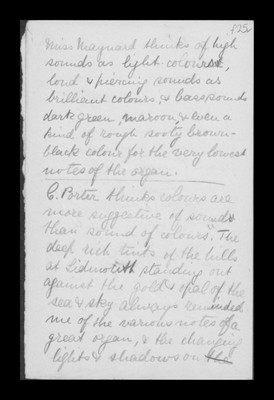 125
Miss Maynard thinks of high
sounds as light colours,
loud & piercing sounds as
brilliant colours & bass sounds
dark green, maroon, & even a
kind of rough sooty brown-
black colour for the very lowest
notes of the organ.
C. Brter thinks colours are
more suggestive of sounds
than sound of colours". The
deep rich tints of the hills
at Sidmouth standing out
against the gold & opal of the
sea & sky always reminded
me of the various notes of a
great organ, & the changing
lights & shadows on the